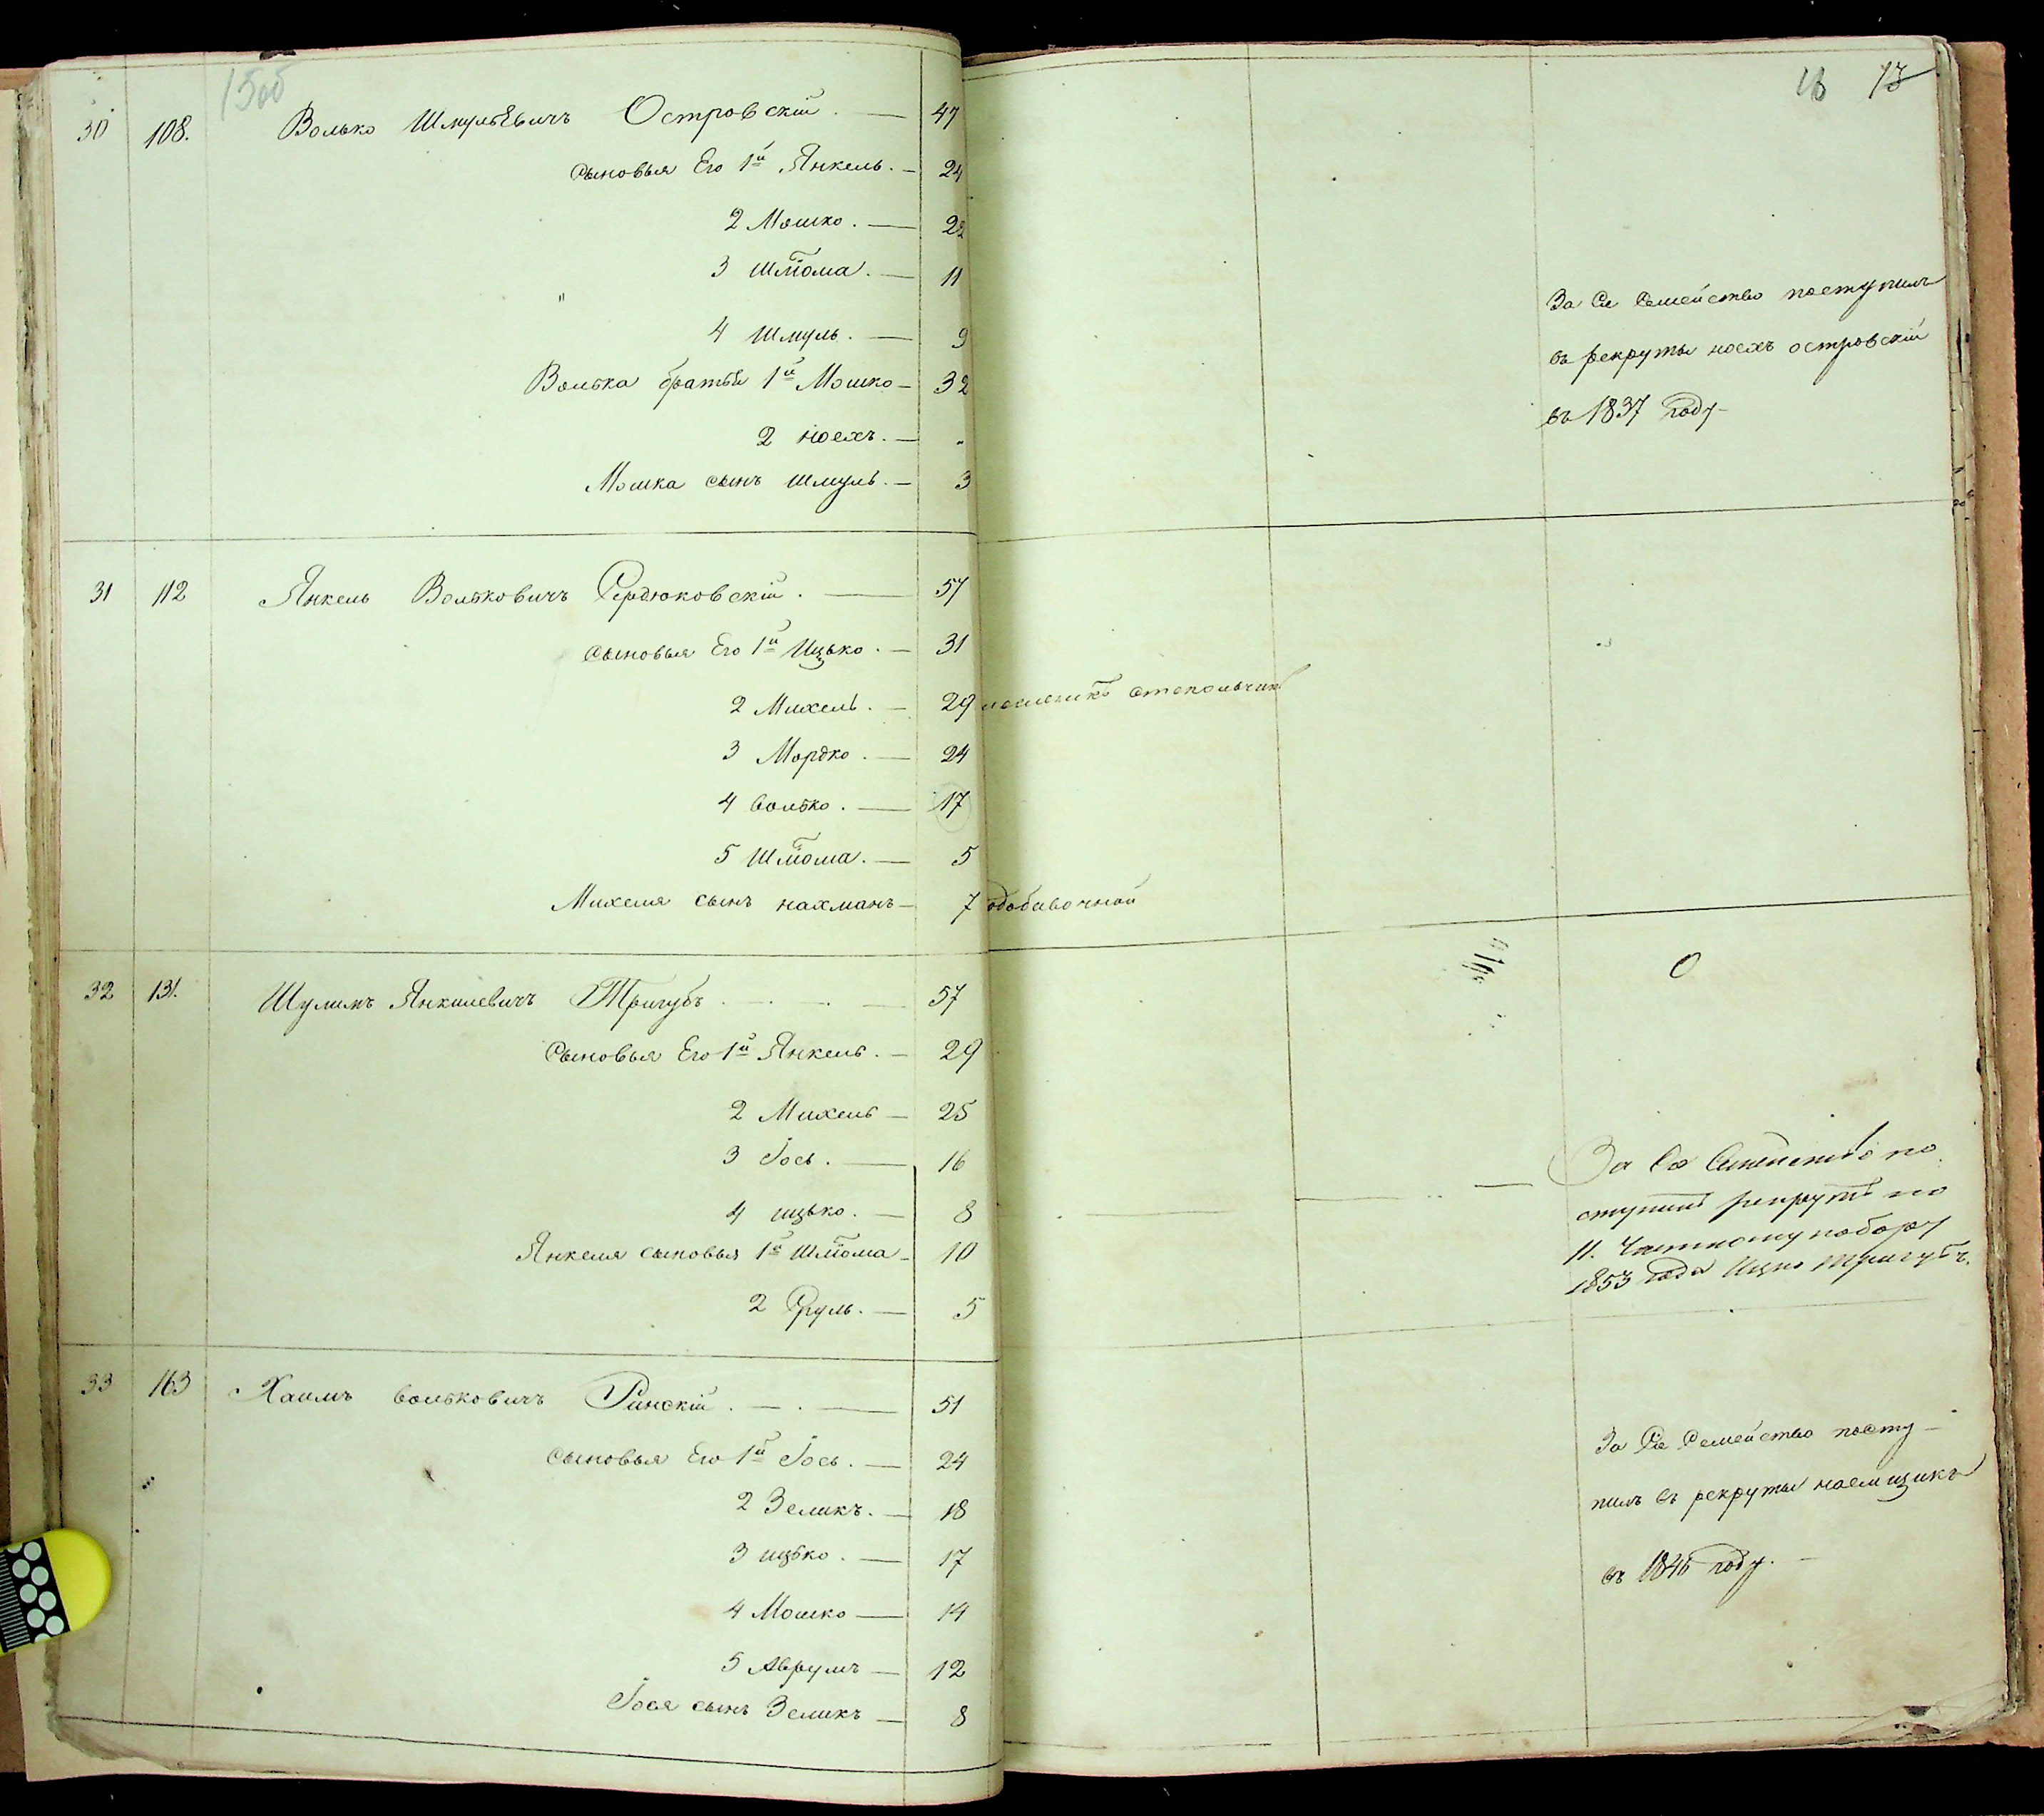 15об
13 73
30 108. Волько Шмульевичъ Островскій. — 47
Сыновья Его 1й Янкель. — 24
2 Мошко. — 22
3 Шліома. — 11
4 Шмуль. — 9
Волька братья 1й Мошко — 32
2 ноехъ. — "
Мошка сынъ Шмуль. — 3
За Сіе Семейство поступилъ
въ рекруты ноехъ островскій
въ 1837 году
31 112 Янкель Вольковичъ Сердюковскій. — 57
Сыновья Его 1й Ицько. — 31
2 Михель. — 29 стекольчик
3 Мордко. — 24
4 Волько. — 17
5 Шліома. — 5
Михеля сынъ нахманъ — 7 добавочной
32 131. Шулимъ Янкилевичъ Тригубъ — 57
0
Сыновья Его 1й Янкель. — 29
2 Михель — 25
3 Іось. — 16
4 ицько. — 8
Янкеля сыновья 1й Шліома — 10
2 Сруль. — 5
За Сіе Семейство по
ступилъ рекрутъ по
11. Частному набору
1853 года Ицко Тригубъ.
33 163 Хаимъ Вольковичъ Ринскій. — 51
Сыновья Его 1й Іось. — 24
2 Зеликъ. — 18
3 ицько. — 17
4 Мошко — 14
5 Аврумъ — 12
Іося сынъ Зеликъ — 8
За Сіе Семейство посту-
пилъ въ рекруты наемщикъ
въ 1846 году.